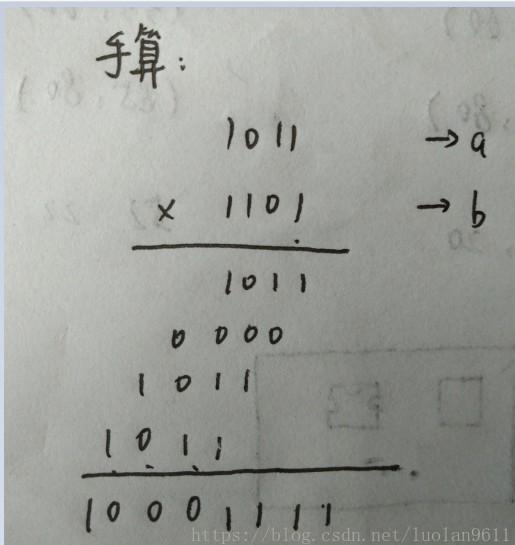 手算:
1011 → a
× 1101 → b
1011
0000
1011
1011
10001111
https://blog.csdn.net/luolan9611